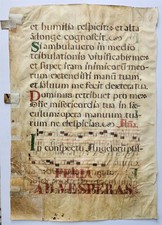 et humilia respicit: et alta
a longe cognoscit.
Si ambulavero in medio
tribulationis vivificabis me:
et super iram inimicorum
meorum extendisti manū tuam,
et salvum me fecit dextera tua.
Dominus retribuet pro me:
misericordia tua in
opera manuum tuarum
ne despicias.
In conspectu Angelorum psal
FERIA
AD VESPERAS